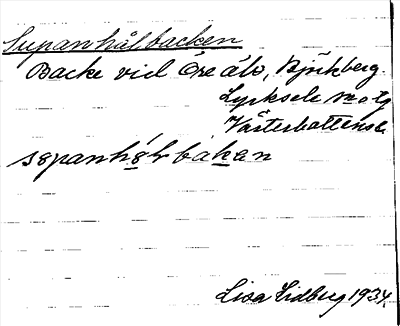 Supanhålbacken
Backe vid Öre älv, Björkberg.
Lycksele sn o tg
Västerbottens l.
sopanhǫlbakan
Lisa Lidberg 1934.